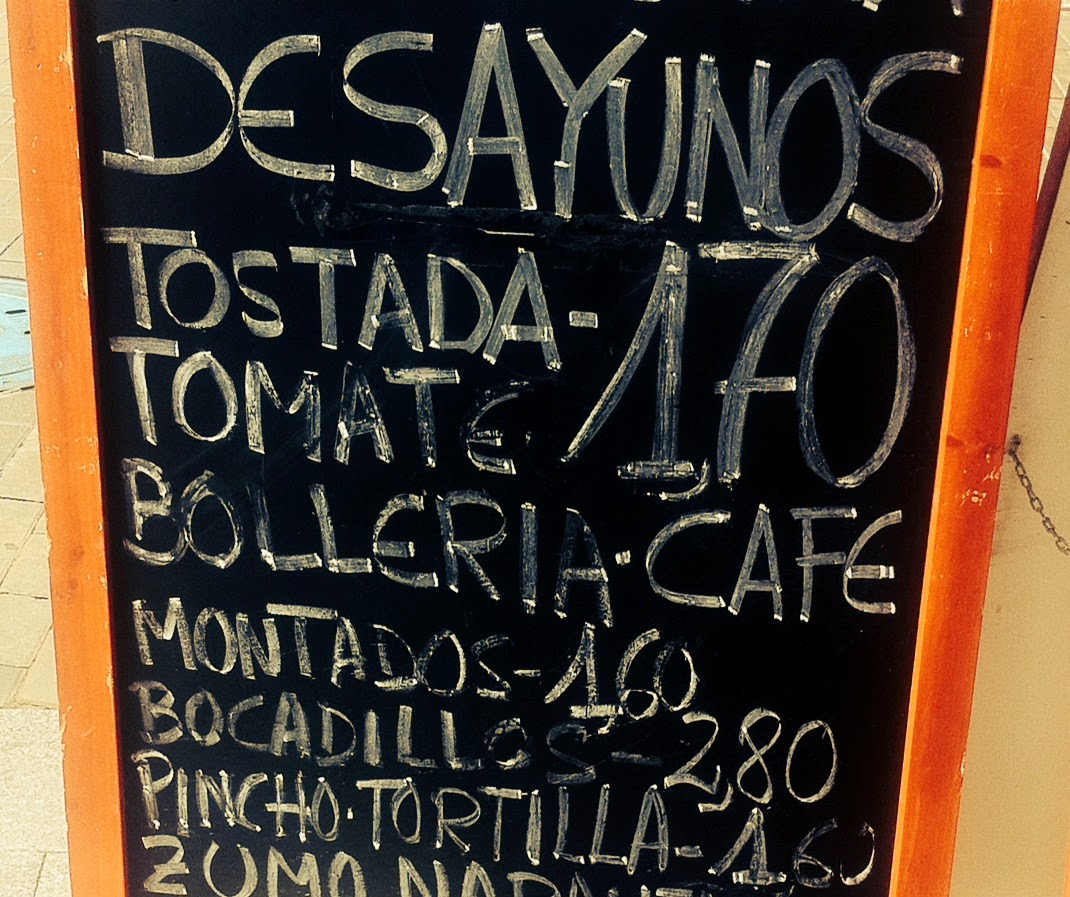 DESAYUNOS
TOSTADA - 1,70
TOMATE
BOLLERIA · CAFE
MONTADOS - 1,60
BOCADILLOS - 2,80
PINCHO · TORTILLA - 1,60
ZUMO